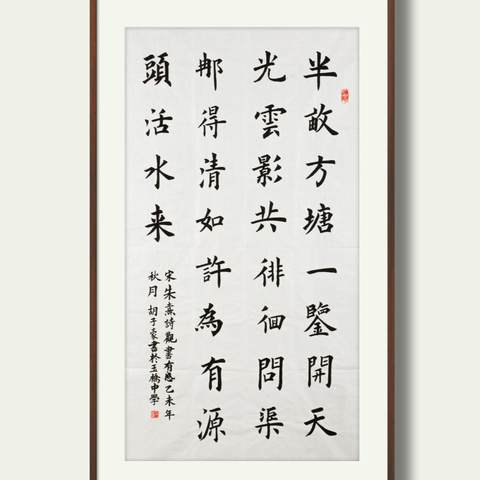 半畝方塘一鑒開天
光雲影共徘徊問渠
那得清如許為有源
頭活水来
宋朱熹詩觀書有感乙未年
秋月 胡子豪書於玉橋中學